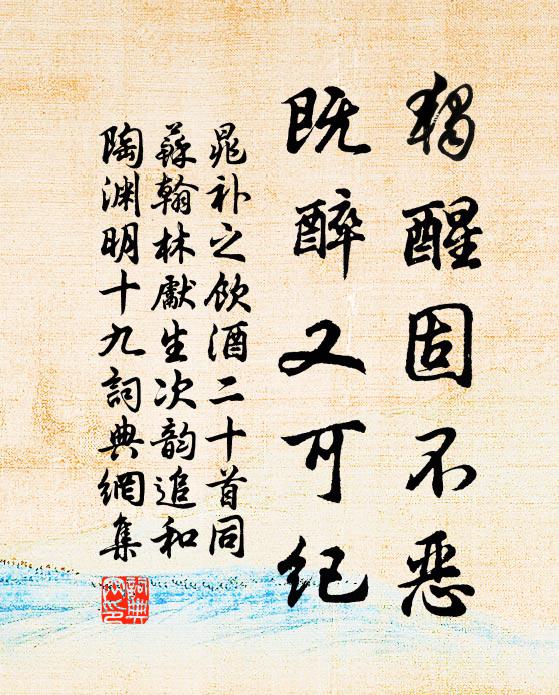 独醒固不恶
既醉又可纪
晁补之飲酒二十首同
蘇翰林獻生次韵追和
陶渊明十九詞典網集